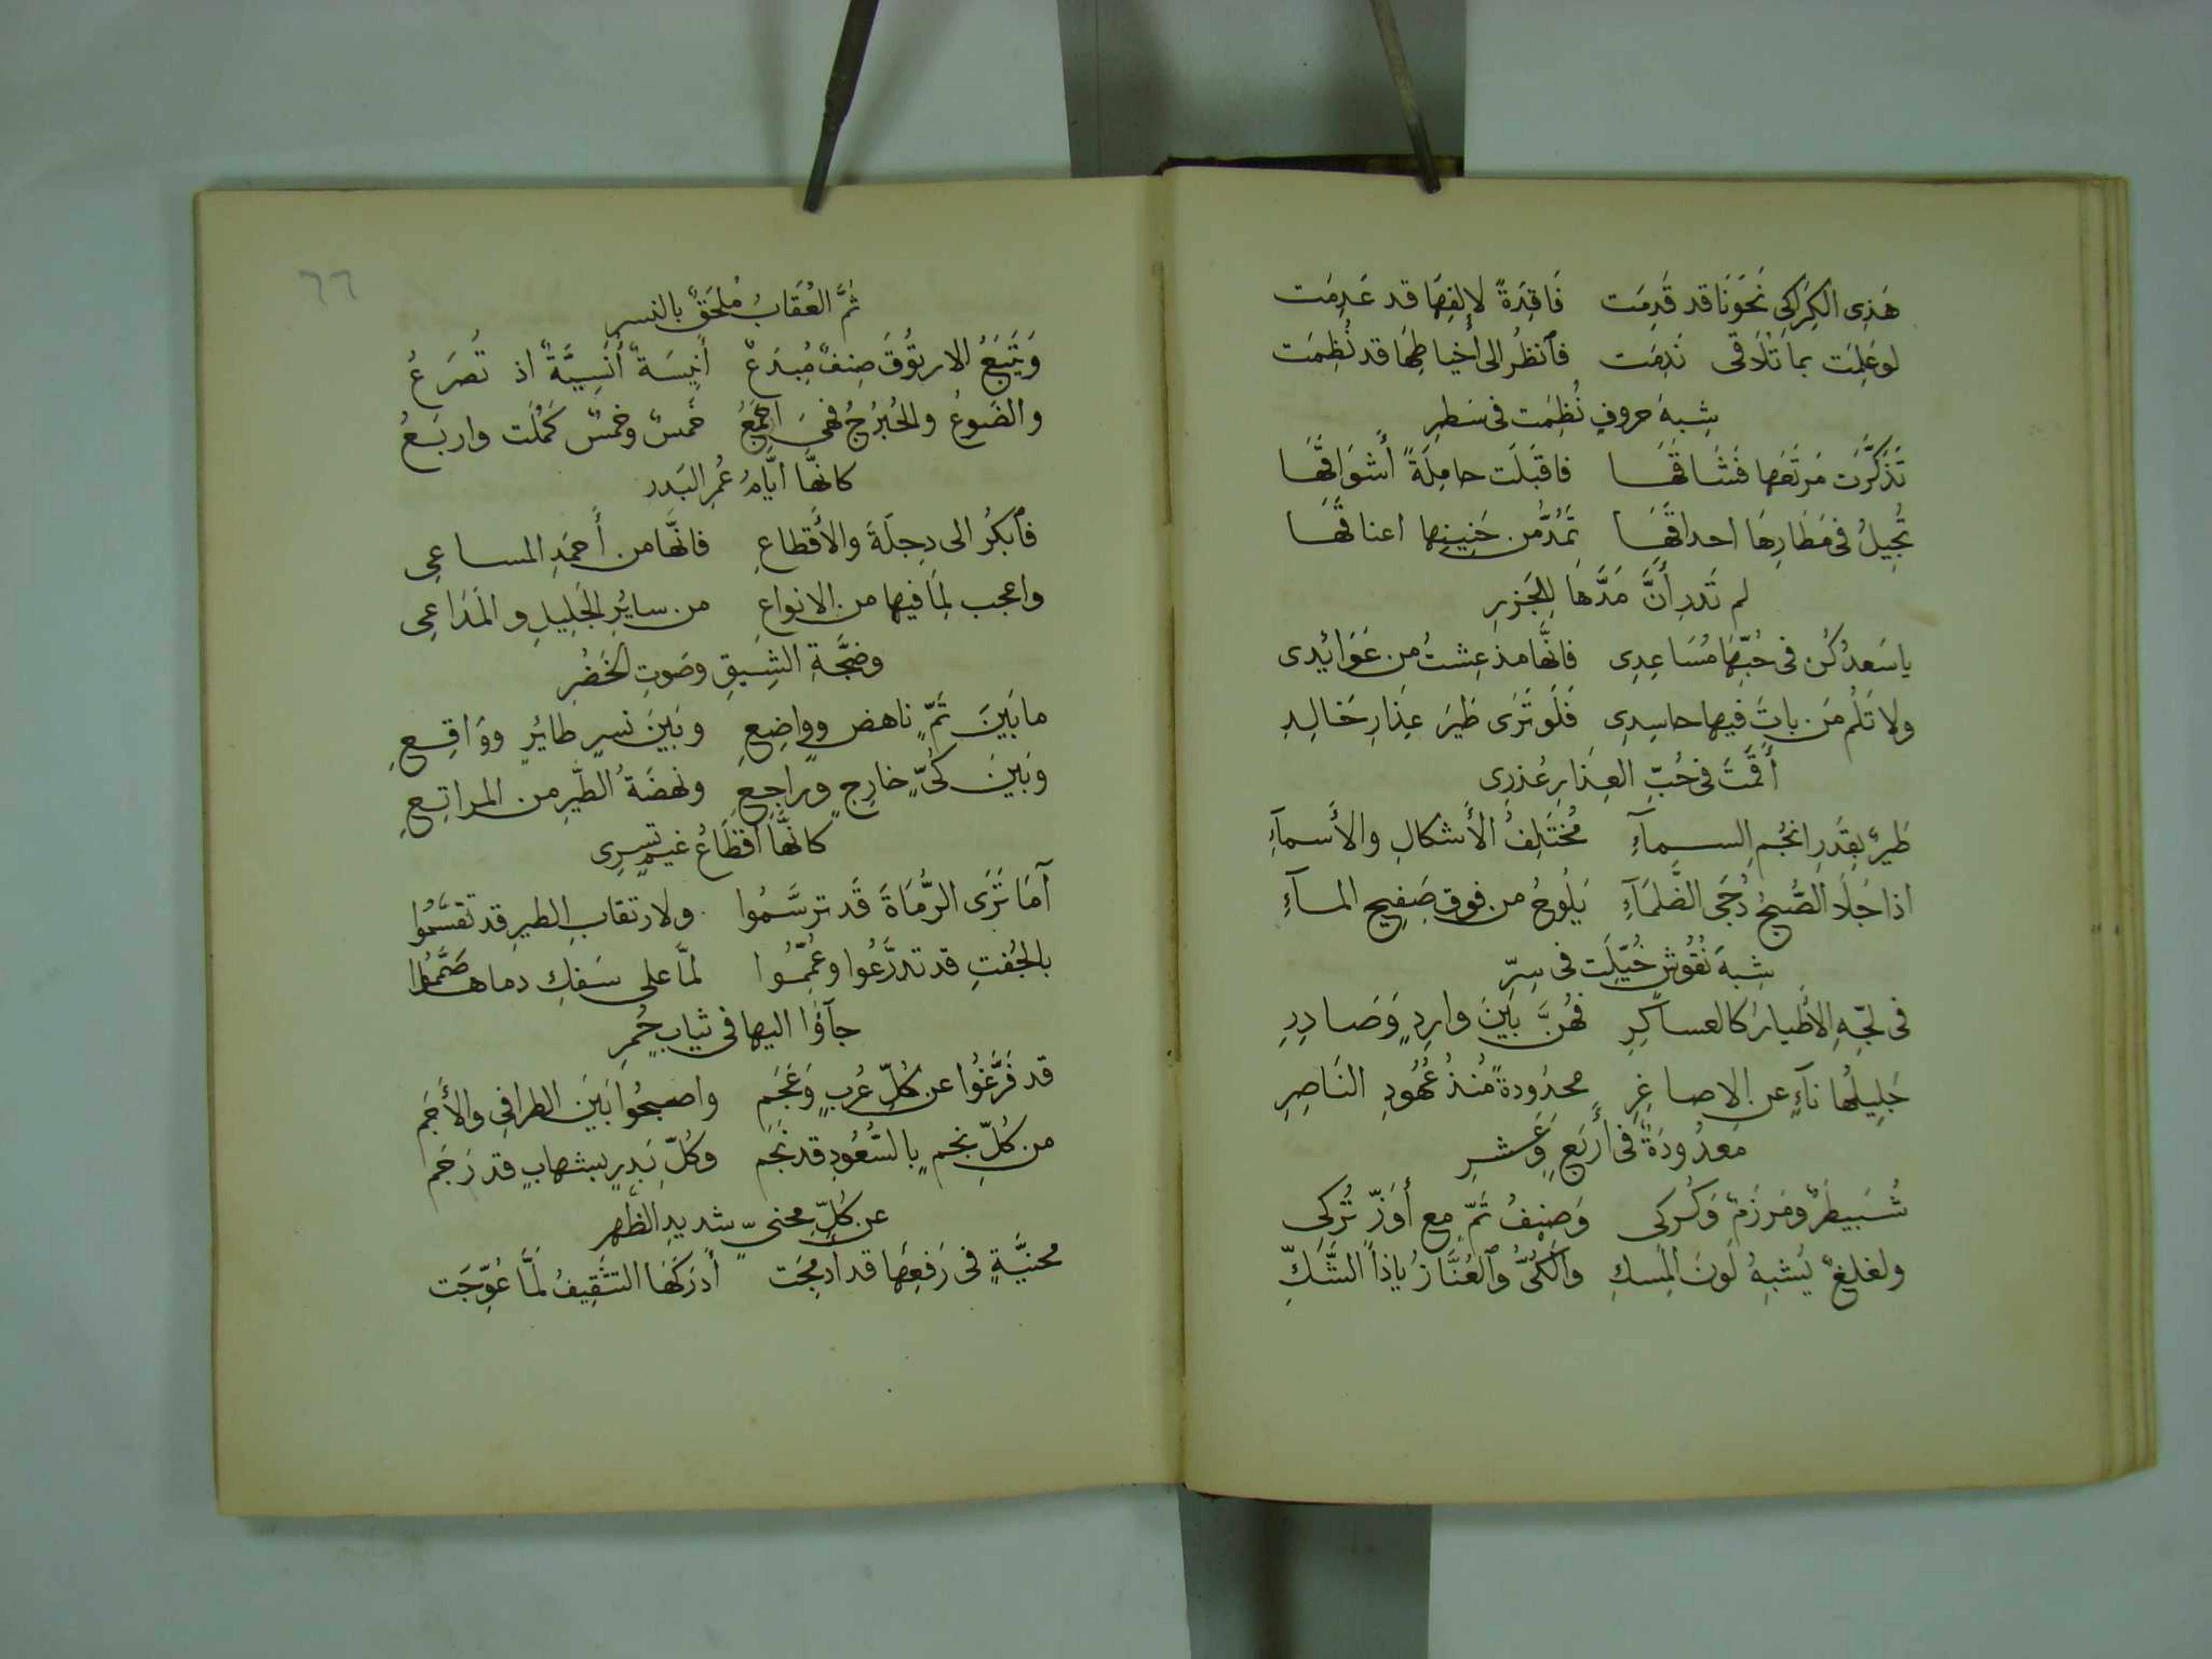 هَذِى الكَرَاكِى نَحوَنَا قد قَدِمَت فَاقِدَةً لإلفِهَا قد عَدِمَت
لو عَلِمَت بما تُلَاقى نَدِمَت فٱنظُر الى أخياطِهَا قد نُظِمَت
شِبهَ حروفٍ نُظِمَت فى سَطرِ
تَذَكَّرَت مَرتَعَها فَشَاقَهَا فاقبَلَت حامِلَةً أشوَاقَهَا
تُجِيلُ فى مَطَارِهَا احداقَهَا تَمُدُّ من حَنِينِها اعناقَهَا
لم تَدرِ أَنَّ مَدَّهَا لِلجَزرِ
يا سَعدُ كُن فى حُبِّهَا مُسَاعِدِى فانَّهَا مذ عِشتُ مِن عَوَائِدى
ولا تَلُم مَن باتَ فيها حاسِدِى فَلَو تَرَى طَيرَ عِذَارِ خَالِدِ
أَقَمتَ فى حُبِّ العِذَارِ عُذرِى
طَيرٌ بِقَدرِ انجُمِ السمآءِ مُختَلِفُ الأَشكالِ والأَسمآءِ
اذا جَلَا الصُّبحُ دُجَى الظَّلمَآءِ يَلُوحُ من فوقِ صَفِيحِ المآءِ
شِبهَ نُقُوشٍ خُيِّلَت فى سِترِ
فى لجِّهِ الأَطيارُ كالعساكِرِ فَهُنَّ بَينَ وارِدٍ وَصَادِرِ
جَلِيلُها نآءٍ عن الاصاغِرِ محدُودةً مُنذُ عُهُودِ النَاصِرِ
مَعدُودَةٌ فى أَربَعٍ وَعَشرِ
شُبَيطَرٌ ومَرزَمٌ وَكُركى وَصِنفُ تَمٍّ مع أَوَزٍّ تُركِى
ولغلغٌ يَشبِهُ لَونَ المِسكِ والكُىُّ وٱلعُنَّازُ يا ذا الشَّكِّ
ثُمَّ العُقَابُ مُلحَقٌ بالنسرِ
وَيَتبَعُ الارتُوقَ صِنفٌ مُبدَعٌ أَنِيسَةٌ أُنسِيَّةٌ اذ تُصرَعُ
والضَوعُ والحُبرُجُ فهىَ اجمَعُ خَمسٌ وخمسٌ كَمُلَت واربَعُ
كانهَّا ايَّامُ عُمرِ البَدرِ
فٱبكُر الى دِجلَةَ والأَقطاعِ فانَّهَا من أَحمَدِ المساعِى
واعجب لِمَا فيها من الانواعِ من سايُرِ الجَلِيلِ والمَرَاعِى
وضَجَّةِ الشِيقِ وصَوتِ الخُضرِ
ما بَينَ تَمٍّ ناهضٍ وواضِعِ وبَينَ نسرٍ طايُرٍ ووَاقِعِ
وبَينَ كُىٍّ خارِجٍ وراجِعِ ونهضَةُ الطَّيرِ من المراتِعِ
كانهَّا أقطَاعُ غيمٍ تسرِى
أمَا تَرَى الرُّمَاةَ قَد ترسَّمُوا ولارتقابِ الطيرِ قد تقسَّمُوا
بالجُفتِ قد تدرَّعُوا وعُمِّمُوا لمَّا على سَفكِ دماها صَمَّمُوا
جآؤا اليها فى ثيابٍ حُمرِ
قد فَزَّعُوا عن كُلِّ عُربٍ وَعَجَم واصبحُوا بَينَ الطرافِ والأَجَم
من كُلِّ نجمٍ بالسُّعُودِ قد نَجَم وكُلِّ بَدرٍ بشهابٍ قد رَجَم
عن كُلِّ محنىٍّ شديدِ الظَهرِ
محنيَّةٍ فى رَفعِهَا قد أدمِجَت أَدرَكَهَا التَثقِيفُ لَمَّا عُوِّجَت
٦٦